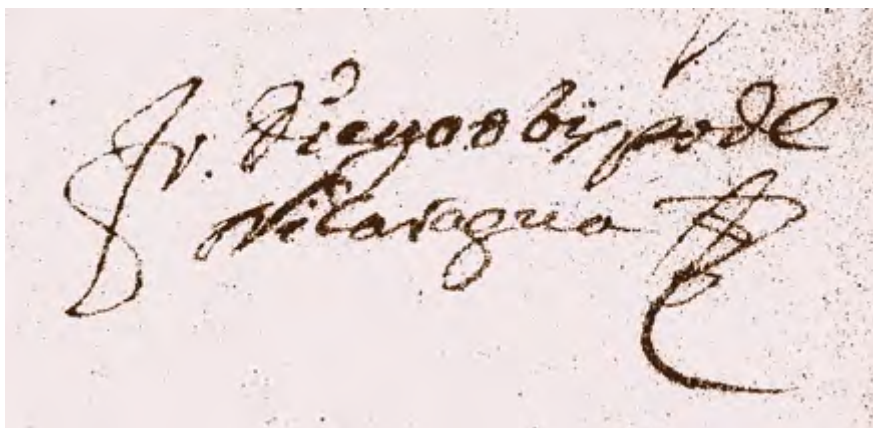 fr. Diego obispo de
Nicaragua